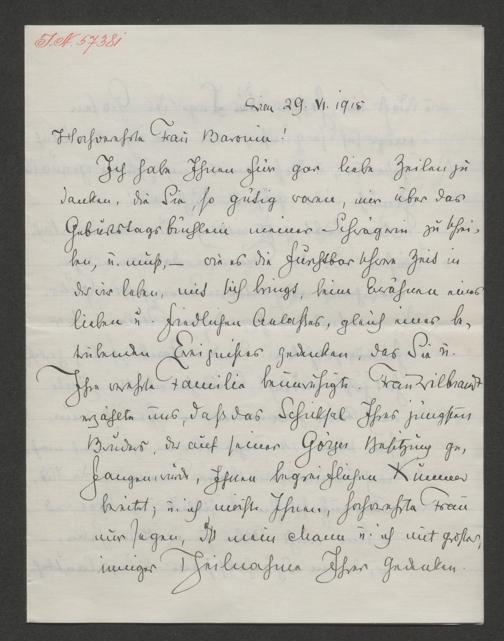 I.N. 57381
Wien 29. VI. 1915
Hochverehrte Frau Baronin!
Ich habe Ihnen für gar liebe Zeilen zu
danken, die Sie so gütig waren, mir über das
Geburtstagsbüchlein meiner Schwägerin zu schrei-
ben, u. muß, – wie es die furchtbar schwere Zeit in
der wir leben, mit sich bringt, beim Erwähnen eines
lieben u. friedlichen Anlasses, gleich eines be-
trübenden Ereignisses gedenken, das Sie u.
Ihre verehrte Familie beunruhigte. Frau Wilbrandt
erzählte uns, daß das Schicksal Ihres jüngsten
Bruders, der auf seiner Görzer Besitzung ge-
fangen wurde, Ihnen begreiflichen Kummer
bereitet; u. ich möchte Ihnen, hochverehrte Frau
nur sagen, daß mein Mann u. ich mit großer,
inniger Theilnahme Ihrer gedenken.